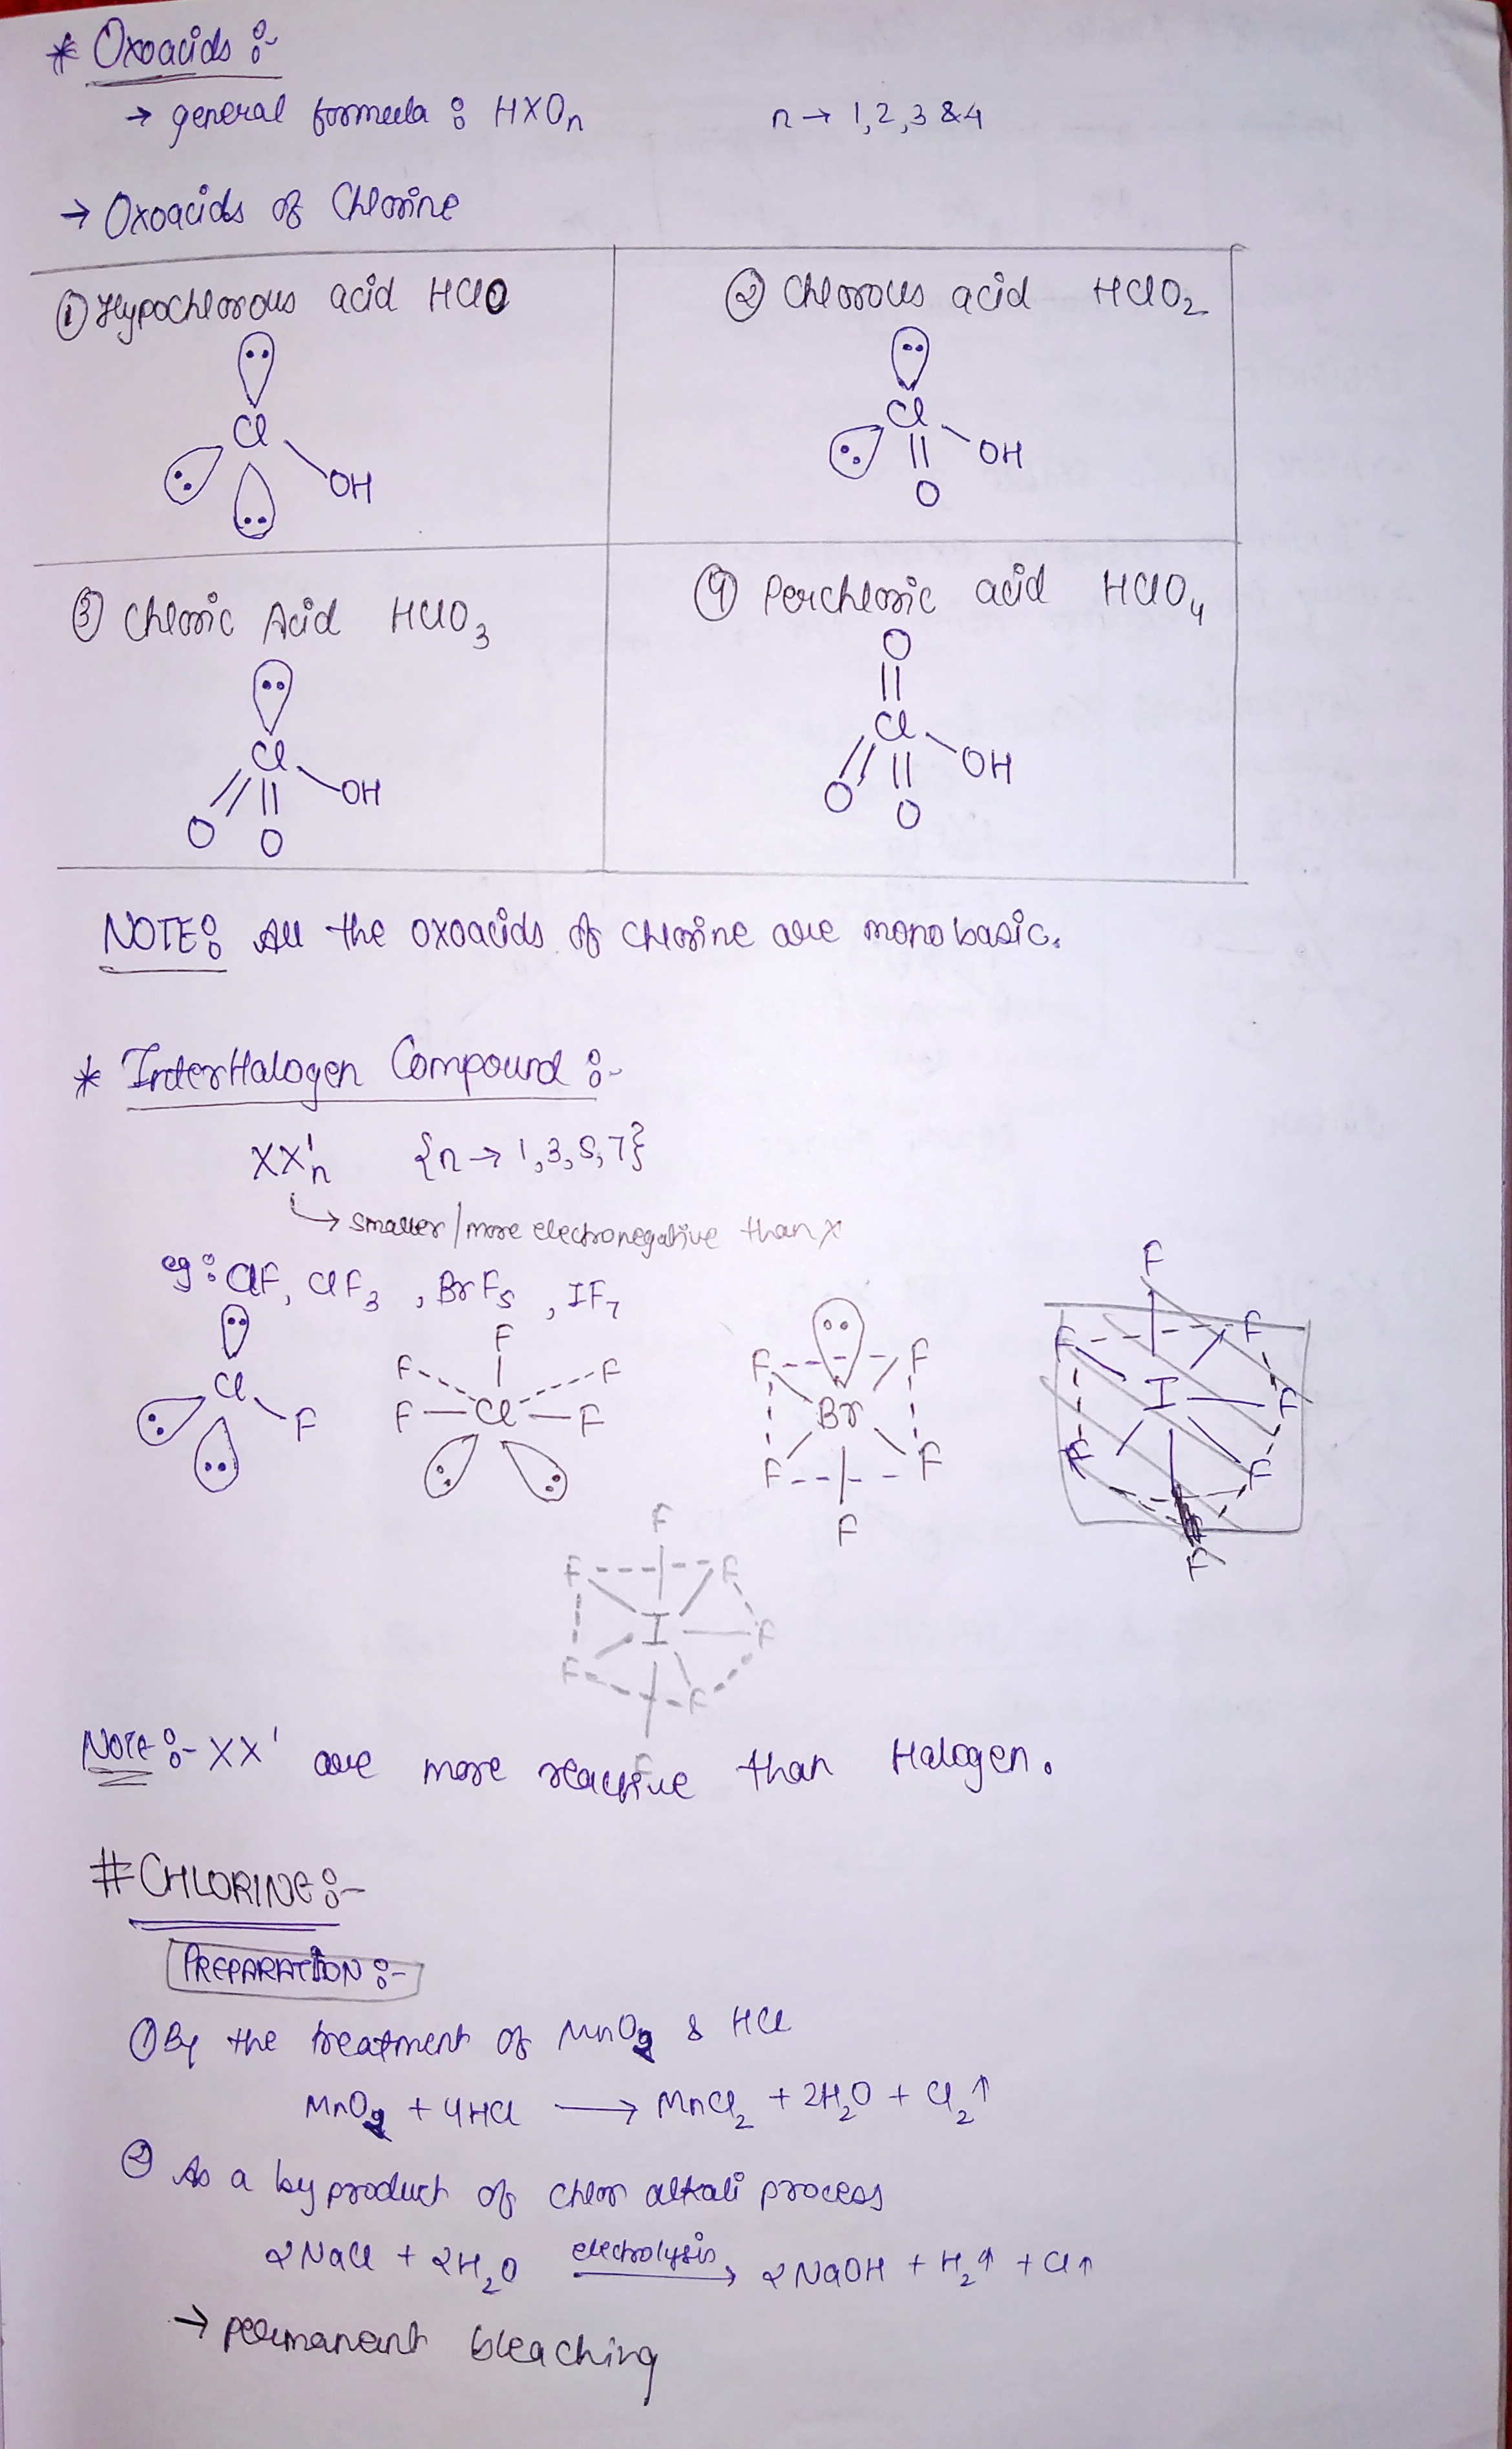 * Oxoacids :-
→ general formula : HXOn n → 1, 2, 3 & 4
→ Oxoacids of Chlorine
① Hypochlorous acid HClO
② Chlorous acid HClO2
Cl
OH
Cl
OH
O
③ Chloric Acid HClO3
④ Perchloric acid HClO4
Cl
OH
O O
O
Cl
OH
O
O
NOTE: All the oxoacids of chlorine are monobasic.
* InterHalogen Compound :-
XX'n {n → 1, 3, 5, 7}
→ smaller / more electronegative than X
eg: ClF, ClF3, BrF5, IF7
Cl
F
F
F F
F Cl F
F F
Br
F F
F
F
F F
I F
F F
F
F
F F
I F
F F
F
Note :- XX' are more reactive than Halogen.
# CHLORINE :-
PREPARATION :-
① By the treatment of MnO2 & HCl
MnO2 + 4HCl → MnCl2 + 2H2O + Cl2↑
② As a by product of chlor alkali process
2NaCl + 2H2O electrolysis → 2NaOH + H2↑ + Cl↑
→ permanent bleaching